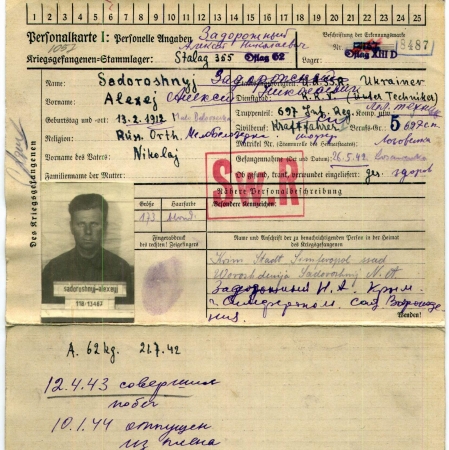 1 2 3 4 5 6 7 8 9 10 11 12 13 14 15 16 17 18 19 20 21 22 23 24 25
Personalkarte I: Personelle Angaben
Задорожный
Алексей Николаевич
Beschriftung der Erkennungsmarke
Kriegsgefangenen-Stammlager: Stalag 365 Oflag 62
18487
Oflag XIII D
Des Kriegsgefangenen
Name: Sadoroshnyj Задорожный
Ukrainer
Vorname: Alexej Алексей Николаевич
Dienstgrad:
Geburtstag und -ort: 13.2.1912
697 Inf. Reg.
Religion: Russ. Orth.
Zivilberuf: Kraftfahrer
Berufs-Gr.: 5
Matrikel Nr. (Stammrolle des Heimatstaates):
Vorname des Vaters: Nikolaj
Gefangennahme (Ort und Datum): 26.5.42
Familienname der Mutter:
gesund, krank, verwundet eingeliefert: ges. здоров
Sw.R
Nähere Personalbeschreibung
Größe
Haarfarbe
Besondere Kennzeichen:
173
blond
Fingerabdruck
des rechten! Zeigefingers
Name und Anschrift der zu benachrichtigenden Person in der Heimat
des Kriegsgefangenen
Krim Stadt Simferopol
Sadoroshnij N. A.
Задорожный Н. А. Крым
г. Симферополь сад
Wenden!
sadoroshnyj-alexej
A. 62 kg. 21.7.42
12.4.43 совершил
побег
10.1.44 отпущен
из плена